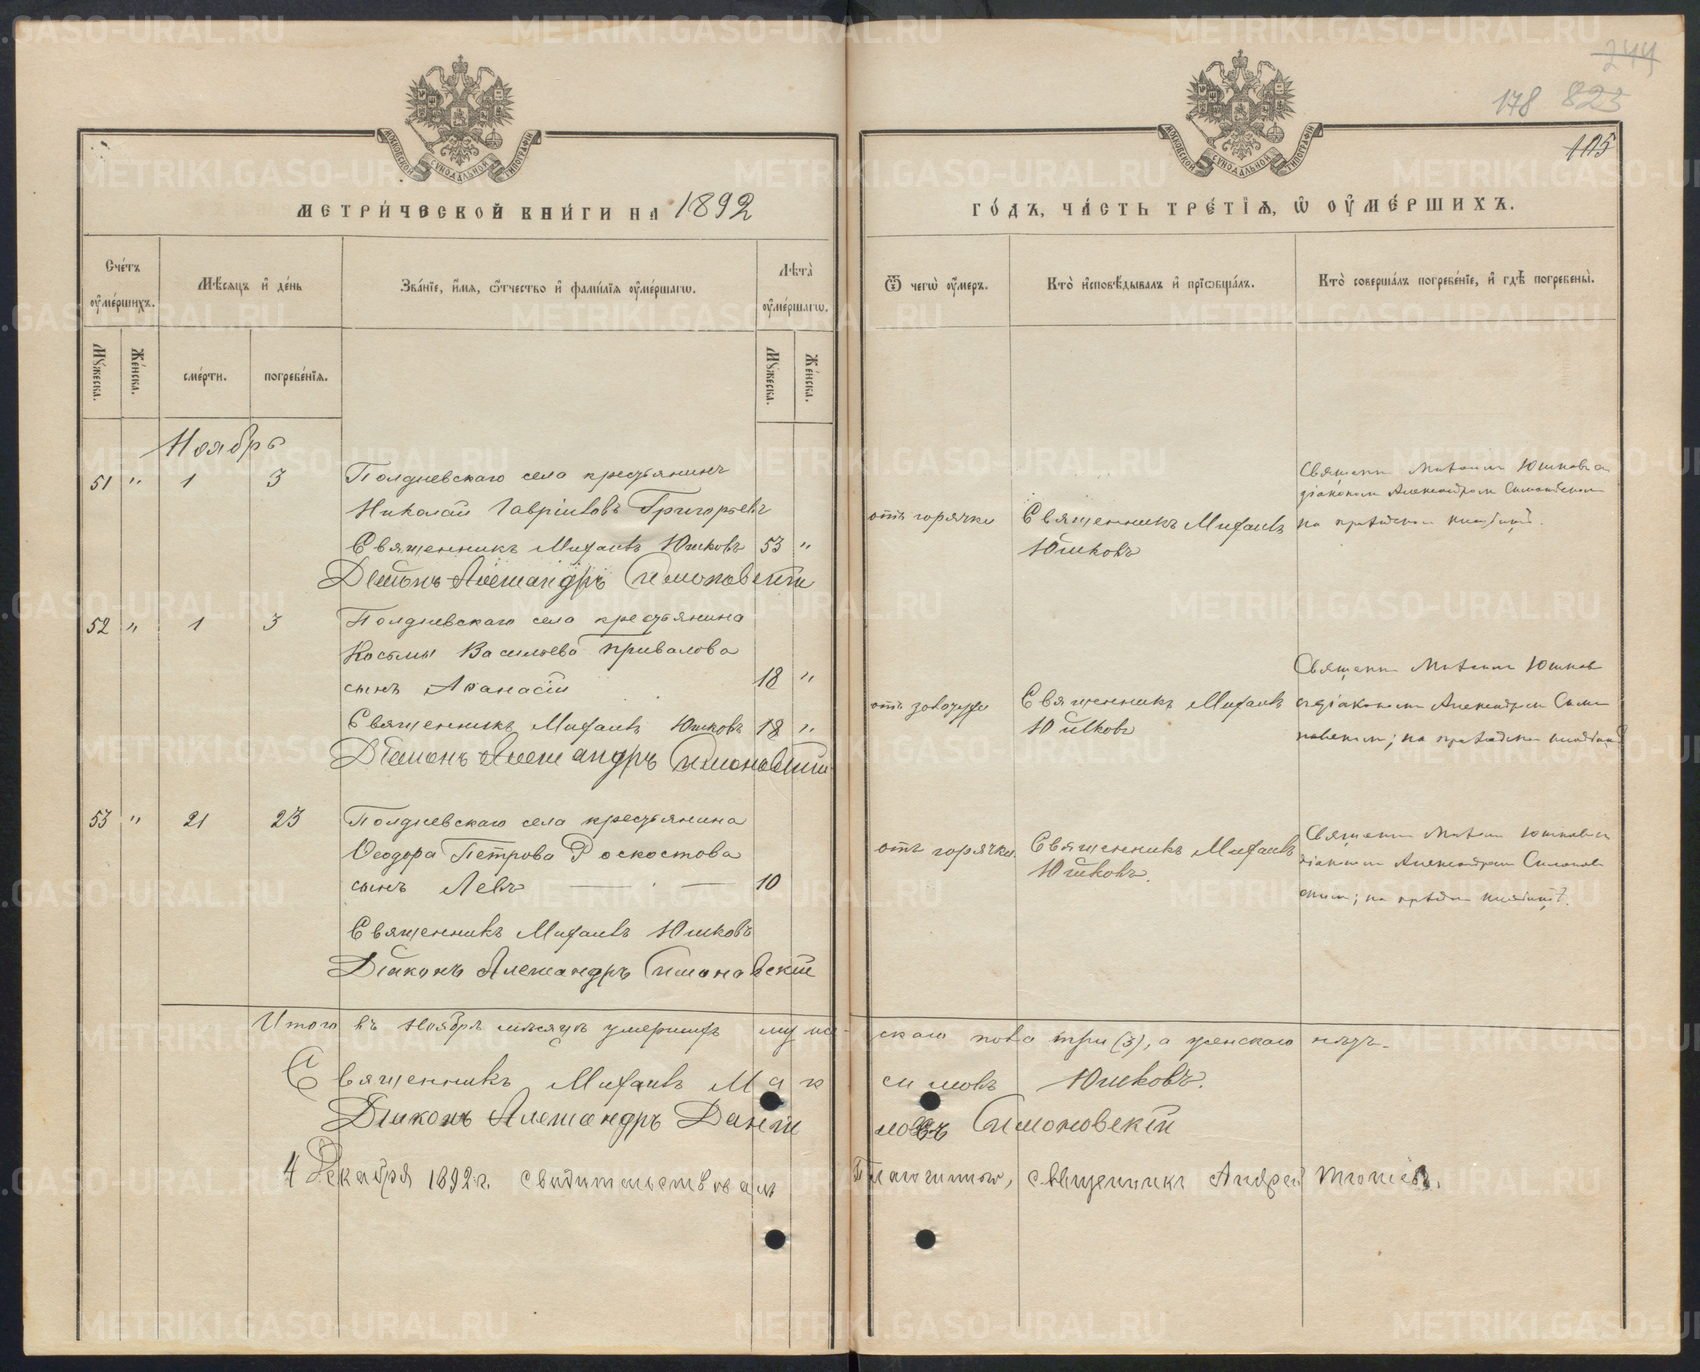 244
178 823
105
МОСКОВСКОЙ СѴНОДАЛЬНОЙ ТИПОГРАФІИ
МОСКОВСКОЙ СѴНОДАЛЬНОЙ ТИПОГРАФІИ
МЕТРИ́ЧЕСКОЙ КНИ́ГИ НА 1892
ГО́ДЪ, ЧА́СТЬ ТРЕ́ТІѦ, Ѡ ОУ҆МЕ́РШИХЪ.
Сче́тъ оу҆ме́ршихъ.
Мѣ́сяцъ и҆ де́нь
Зва́нїе, и҆́мя, ѻ҆́тчество и҆ фами́лїя оу҆ме́ршагѡ.
Лѣта̀ оу҆ме́ршагѡ.
Ѿ чегѡ̀ оу҆́меръ.
Кто̀ и҆сповѣ́дывалъ и҆ прїѡбща́лъ.
Кто̀ соверша́лъ погребе́нїе, и҆ гдѣ̀ погребены̀.
Мꙋ́жеска.
Же́нска.
сме́рти.
погребе́нїя.
Мꙋ́жеска.
Же́нска.
Ноябрь
51 " 1 3
Полдневскаго села крестьянинъ
Николай Гавріиловъ Григорьевъ
Священникъ Михаилъ Юшковъ 53 "
Діаконъ Александръ Симоновскій
отъ горячки
Священникъ Михаилъ
Юшковъ
Священ. Михаилъ Юшковъ съ
діакономъ Александромъ Симоновскимъ
на приходскомъ кладбищѣ.
52 " 1 3
Полдневскаго села крестьянина
Косьмы Васильева Привалова
сынъ Аѳанасій 18 "
Священникъ Михаилъ Юшковъ 18 "
Діаконъ Александръ Симоновскій
отъ
Священникъ Михаилъ
Юшковъ
Священ. Михаилъ Юшковъ
съ діакономъ Александромъ Симо
новскимъ; на приходскомъ кладбищѣ
53 " 21 23
Полдневскаго села крестьянина
Ѳеодора Петрова
сынъ Левъ 10
Священникъ Михаилъ Юшковъ
Діаконъ Александръ Симоновскій
отъ горячки
Священникъ Михаилъ
Юшковъ.
Священ. Михаилъ Юшковъ съ
діакономъ Александромъ Симонов
скимъ; на приходск. кладбищѣ.
Итого въ Ноябрѣ мѣсяцѣ умершихъ муже-
скаго пола три (3), а женскаго нѣтъ.
Священникъ Михаилъ Мак
симовъ Юшковъ.
Діаконъ Александръ Даніи
ловъ Симоновскій
4 Декабря 1892 г. свидѣтельствовалъ
Благочинный, священникъ Андрей
METRIKI.GASO-URAL.RU